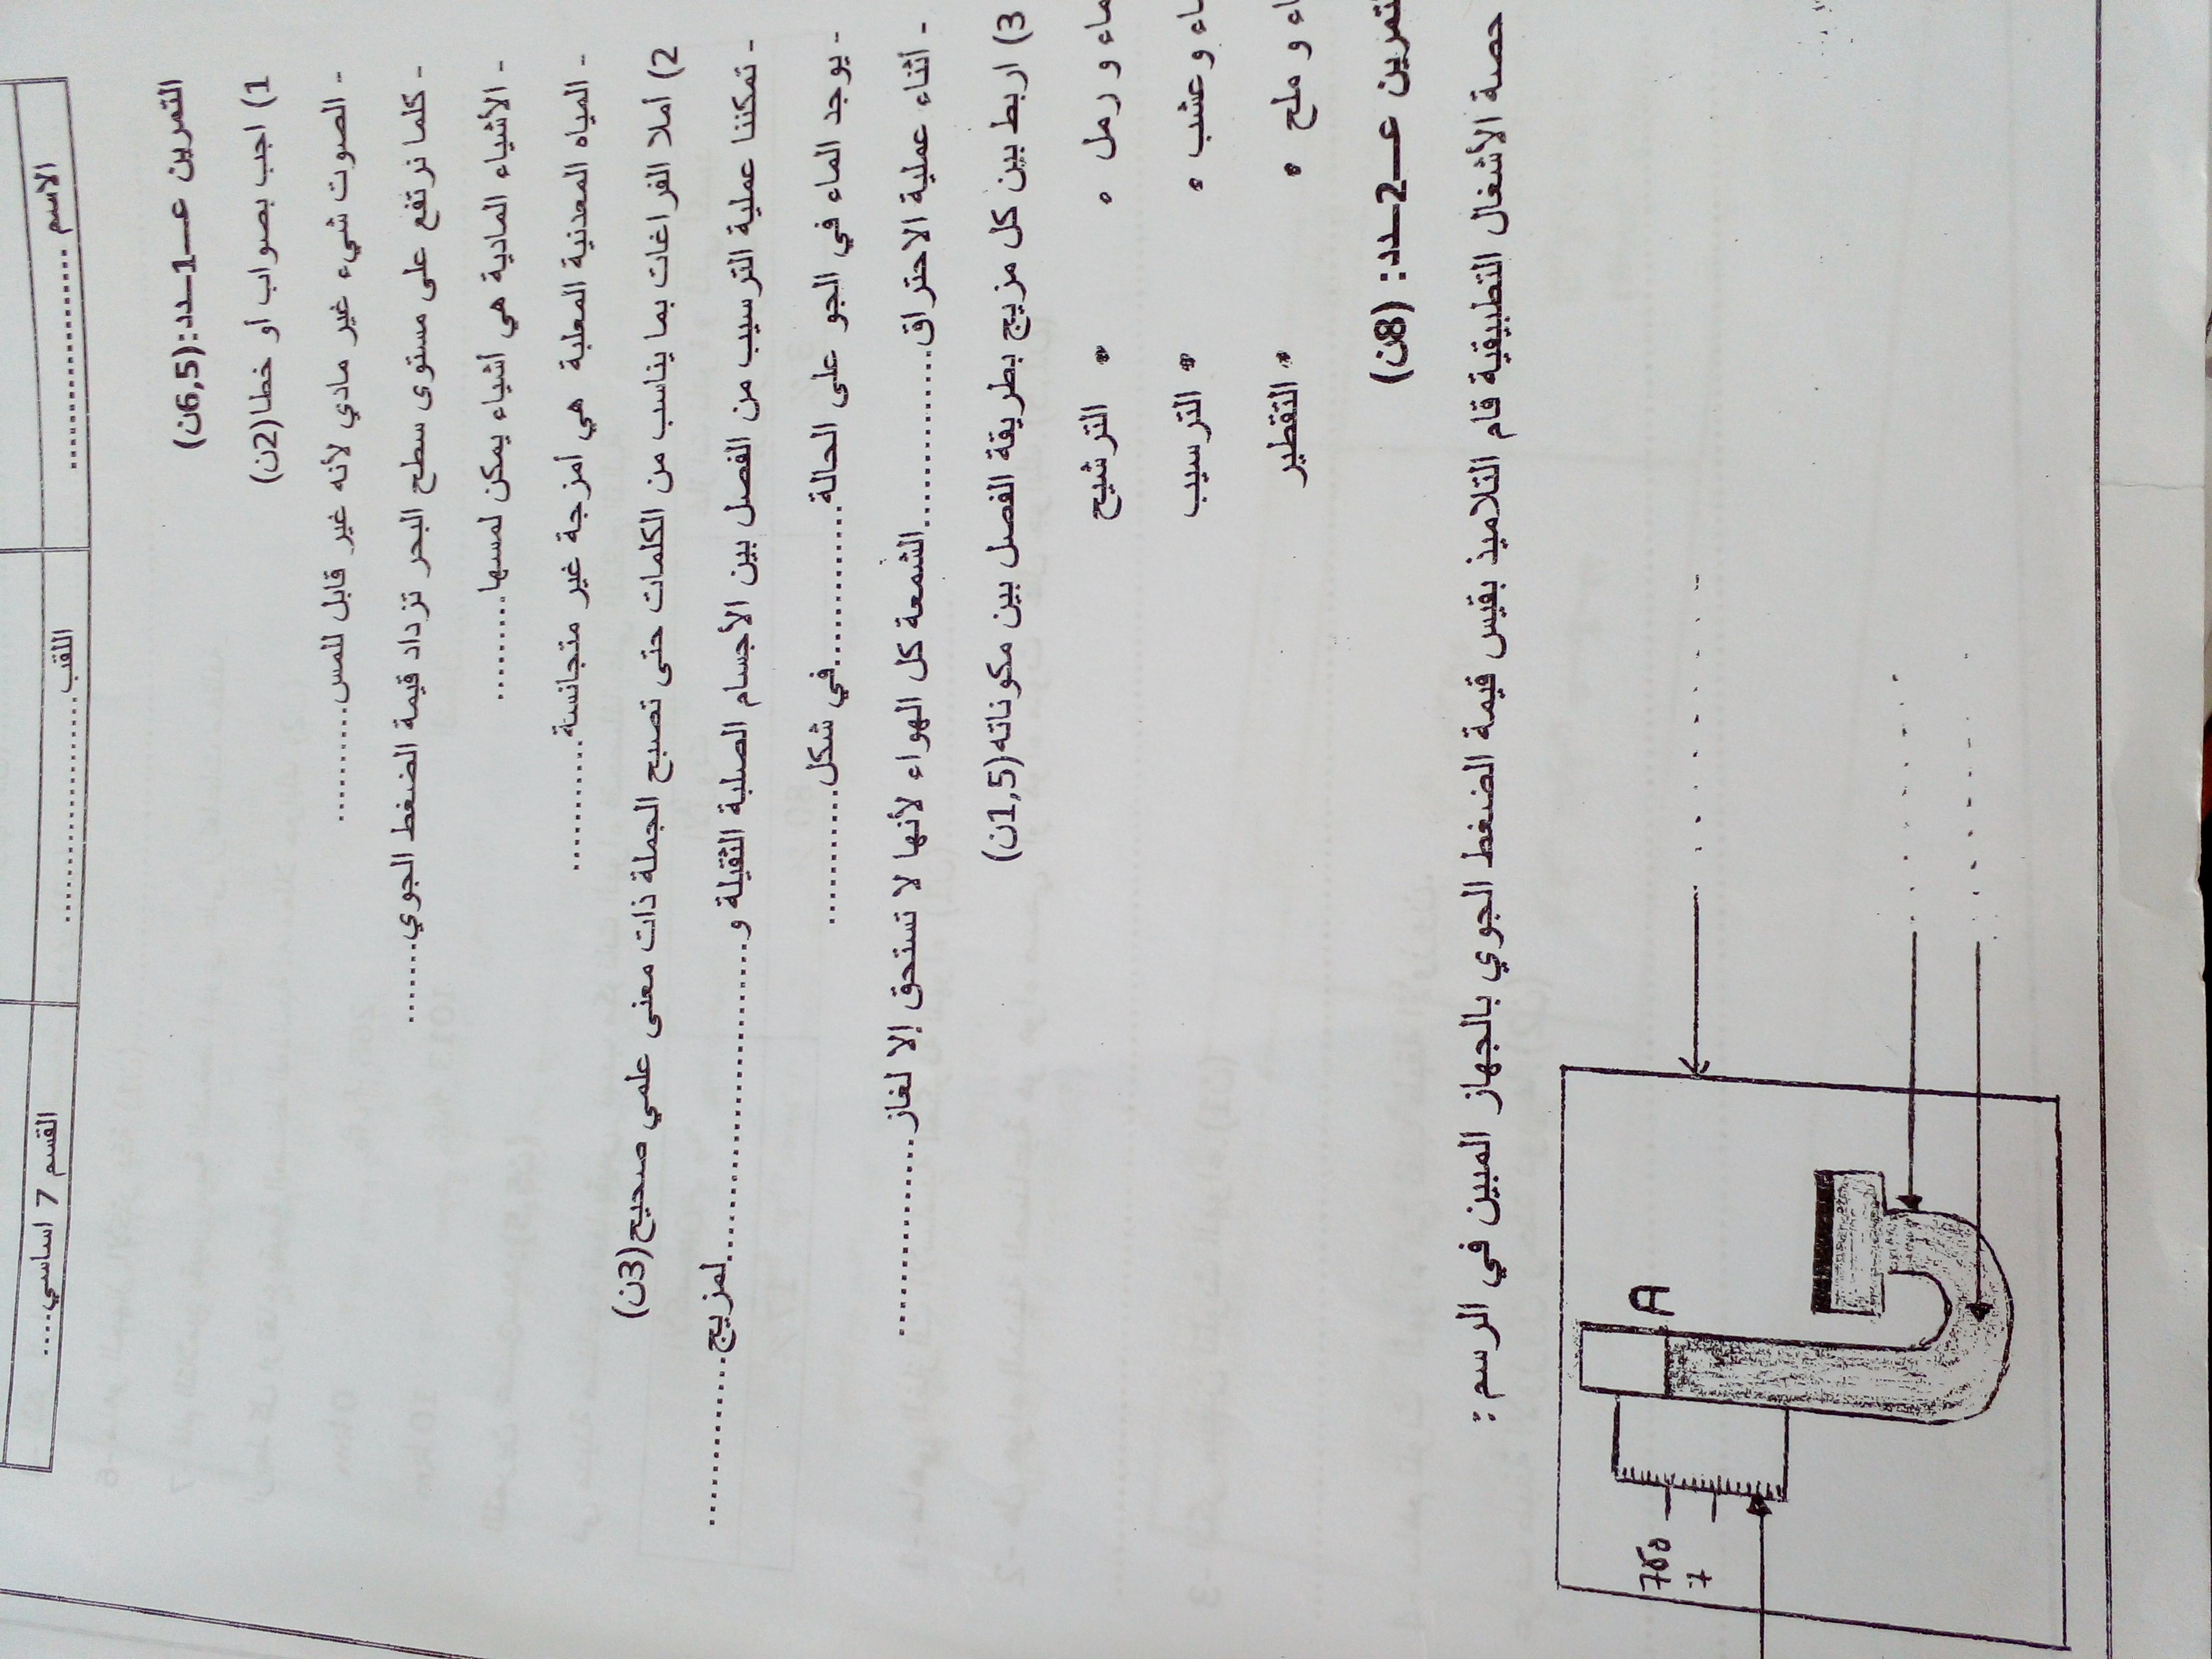 الاسم ....................
اللقب....................
القسم 7 اساسي.....
التمرين عـــ1ــدد:(6,5ن)
1) اجب بصواب أو خطا(2ن)
- الصوت شيء غير مادي لأنه غير قابل للمس............
- كلما نرتفع على مستوى سطح البحر تزداد قيمة الضغط الجوي........
- الأشياء المادية هي أشياء يمكن لمسها...........
- المياه المعدنية المعلبة هي أمزجة غير متجانسة.............
2) أملا الفراغات بما يناسب من الكلمات حتى تصبح الجملة ذات معنى علمي صحيح(3ن)
- تمكننا عملية الترسيب من الفصل بين الأجسام الصلبة الثقيلة و..............................لمزيج................
- يوجد الماء في الجو على الحالة................في شكل.............
- أثناء عملية الاحتراق................الشمعة كل الهواء لأنها لا تستحق إلا لغاز...................
3) اربط بين كل مزيج بطريقة الفصل بين مكوناته(1,5ن)
و رمل • • الترشيح
وعشب • • الترسيب
و ملح • • التقطير
عـــ2ــدد: (8ن)
حصة الأشغال التطبيقية قام التلاميذ بقيس قيمة الضغط الجوي بالجهاز المبين في الرسم :
A
760
7